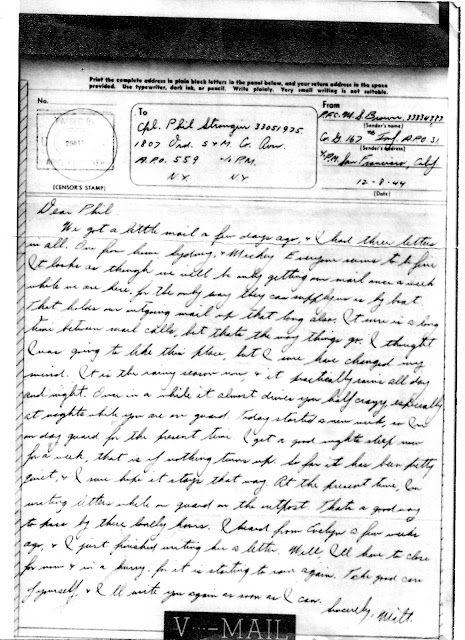 Print the complete address in plain block letters in the panel below, and your return address in the space
provided. Use typewriter, dark ink, or pencil. Write plainly. Very small writing is not suitable.
No.
To
Cpl. Phil Stronger 33051975
1807 Ord. S & M. Co. Avn.
A.P.O. 559 % P.M.
N.Y. N.Y.
(CENSOR'S STAMP)
From
P.F.C. M. S. Brown 33834383
(Sender's name)
Co G. 167th Inf. A.P.O. 31
(Sender's address)
% P.M. San Francisco, Calif
12-8-44
(Date)
Dear Phil
We got a little mail a few days ago, & I had three letters
in all. One from home, & Mickey. Everyone seems to be fine
It looks as though we will be only getting our mail once a week
while we are here, for the only way they can supply us is by boat.
That holds our outgoing mail up that long also. It sure is a long
time between mail calls, but thats the way things go. I thought
I was going to like this place, but I sure have changed my
mind. It is the rainy season now, & it practically rains all day
and night. Once in a while it almost drives you half crazy, especially
at nights while you are on guard. Today started a new week, so I'm
on day guard for the present time I get a good nights sleep now
for a week, that is if nothing turns up. So far it has been pretty
quiet, & I sure hope it stays that way. At the present time, I'm
writing letters while on guard on the outpost. Thats a good way
to pass by these lonely hours. I heard from Evelyn a few weeks
ago, & I just finished writing her a letter. Well, I'll have to close
for now & in a hurry, for it is starting to rain again. Take good care
of yourself, & I'll write you again as soon as I can.
Sincerely, Milt.
V···-MAIL